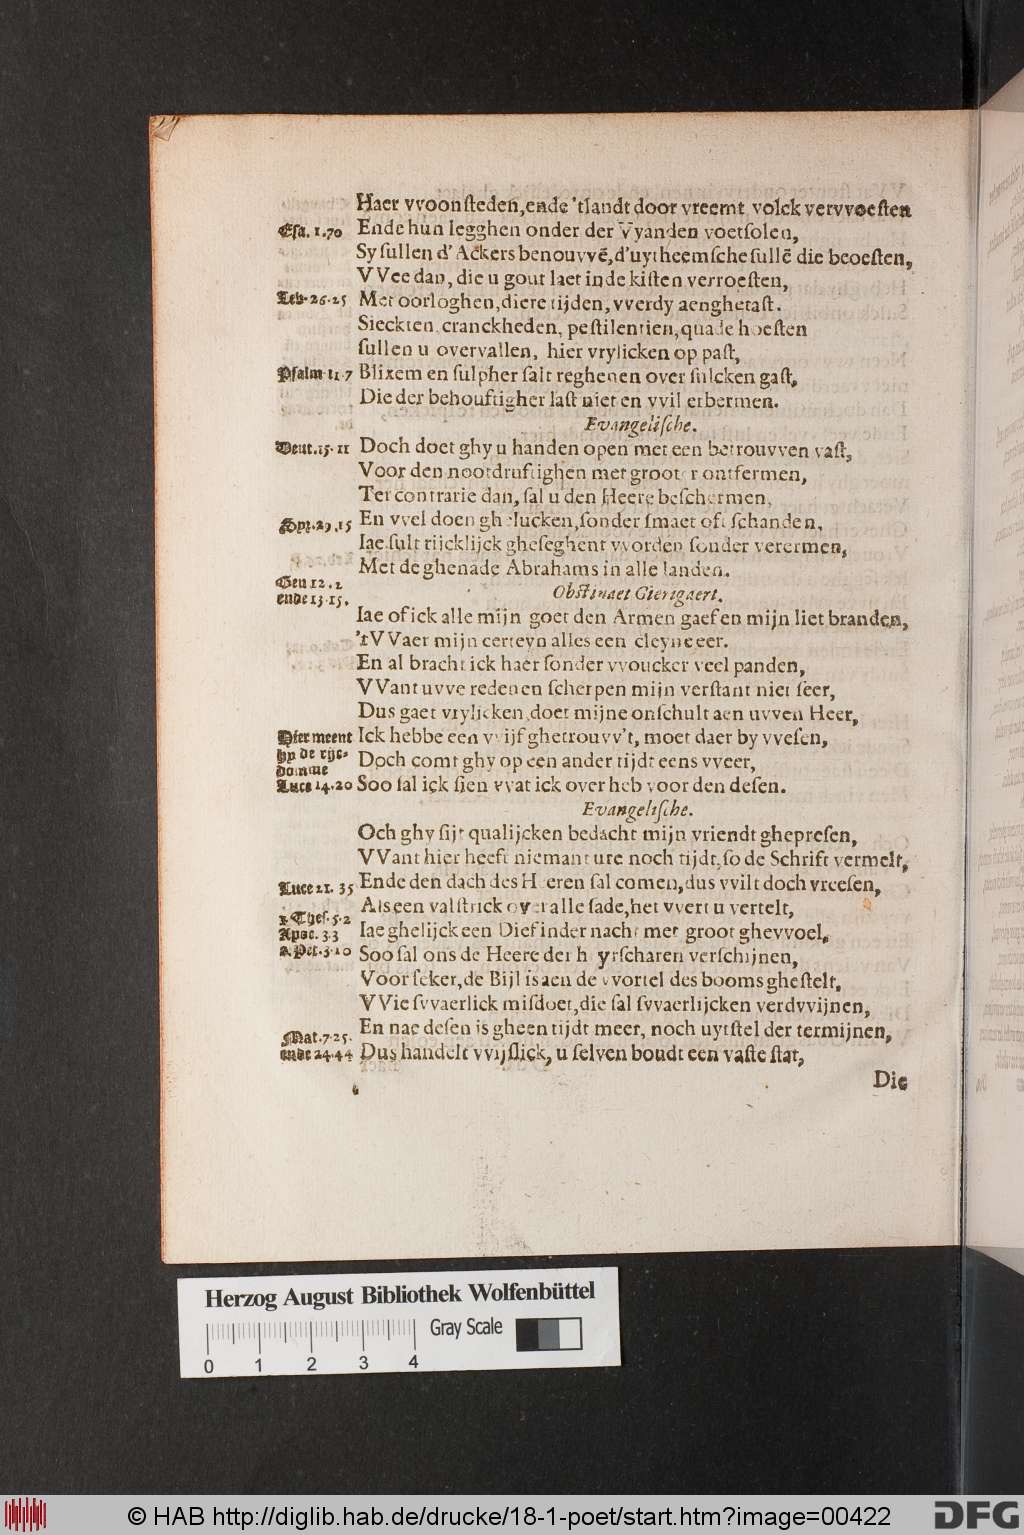 Haer vvoonsteden, ende 'tlandt door vreemt volck vervvoesten
Esa. 1.70 Ende hun legghen onder der Vyanden voetsolen,
Sy sullen d'Ackers benouvvē, d'uytheemsche sullē die beoesten,
VVee dan, die u gout laet in de kisten verroesten,
Lev. 26.25 Met oorloghen, diere tijden, vverdy aenghetast.
Sieckten, cranckheden, pestilentien, quade hoesten
sullen u overvallen, hier vrylicken op past,
Psalm 11.7 Blixem en sulpher salt reghenen over sulcken gast,
Die der behouftigher last niet en vvil erbermen.
Evangelische.
Deut. 15.11 Doch doet ghy u handen open met een betrouvven vast,
Voor den nootdruftighen met grooter ontfermen,
Ter contrarie dan, sal u den Heere beschermen,
Spr. 29.15 En vvel doen ghelucken, sonder smaet oft schanden,
Iae sult rijcklijck gheseghent vvorden sonder verermen,
Met de ghenade Abrahams in alle landen.
Gen 12.2
ende 13.15.
Obstinaet Gierigaert.
Iae of ick alle mijn goet den Armen gaef en mijn liet branden,
'tVVaer mijn certeyn alles een cleyne eer.
En al bracht ick haer sonder vvoucker veel panden,
VVant uvve redenen scherpen mijn verstant niet seer,
Dus gaet vrylicken, doet mijne onschult aen uvven Heer,
Dier meent Ick hebbe een vvijf ghetrouvv't, moet daer by vvesen,
hy de rijc-
domme
Doch comt ghy op een ander tijdt eens vveer,
Luce 14.20 Soo sal ick sien vvat ick over heb voor den desen.
Evangelische.
Och ghy sijt qualijcken bedacht mijn vriendt ghepresen,
VVant hier heeft niemant ure noch tijdt, so de Schrift vermelt,
Luce 21. 35 Ende den dach des Heeren sal comen, dus vvilt doch vreesen,
Als een valstrick over alle sade, het vvert u vertelt,
1. Thes. 5.2
Apoc. 3.3 Iae ghelijck een Dief inder nacht met groot ghevvoel,
2. Pet. 3.10 Soo sal ons de Heere der heyrscharen verschijnen,
Voor seker, de Bijl is aen de vvortel des booms ghestelt,
VVie svvaerlick misdoet, die sal svvaerlijcken verdvvijnen,
Mat. 7.25. En nae desen is gheen tijdt meer, noch uytstel der termijnen,
ende 24.44 Dus handelt vvijslick, u selven houdt een vaste stat,
Die
Herzog August Bibliothek Wolfenbüttel
Gray Scale
0 1 2 3 4
© HAB http://diglib.hab.de/drucke/18-1-poet/start.htm?image=00422
DFG